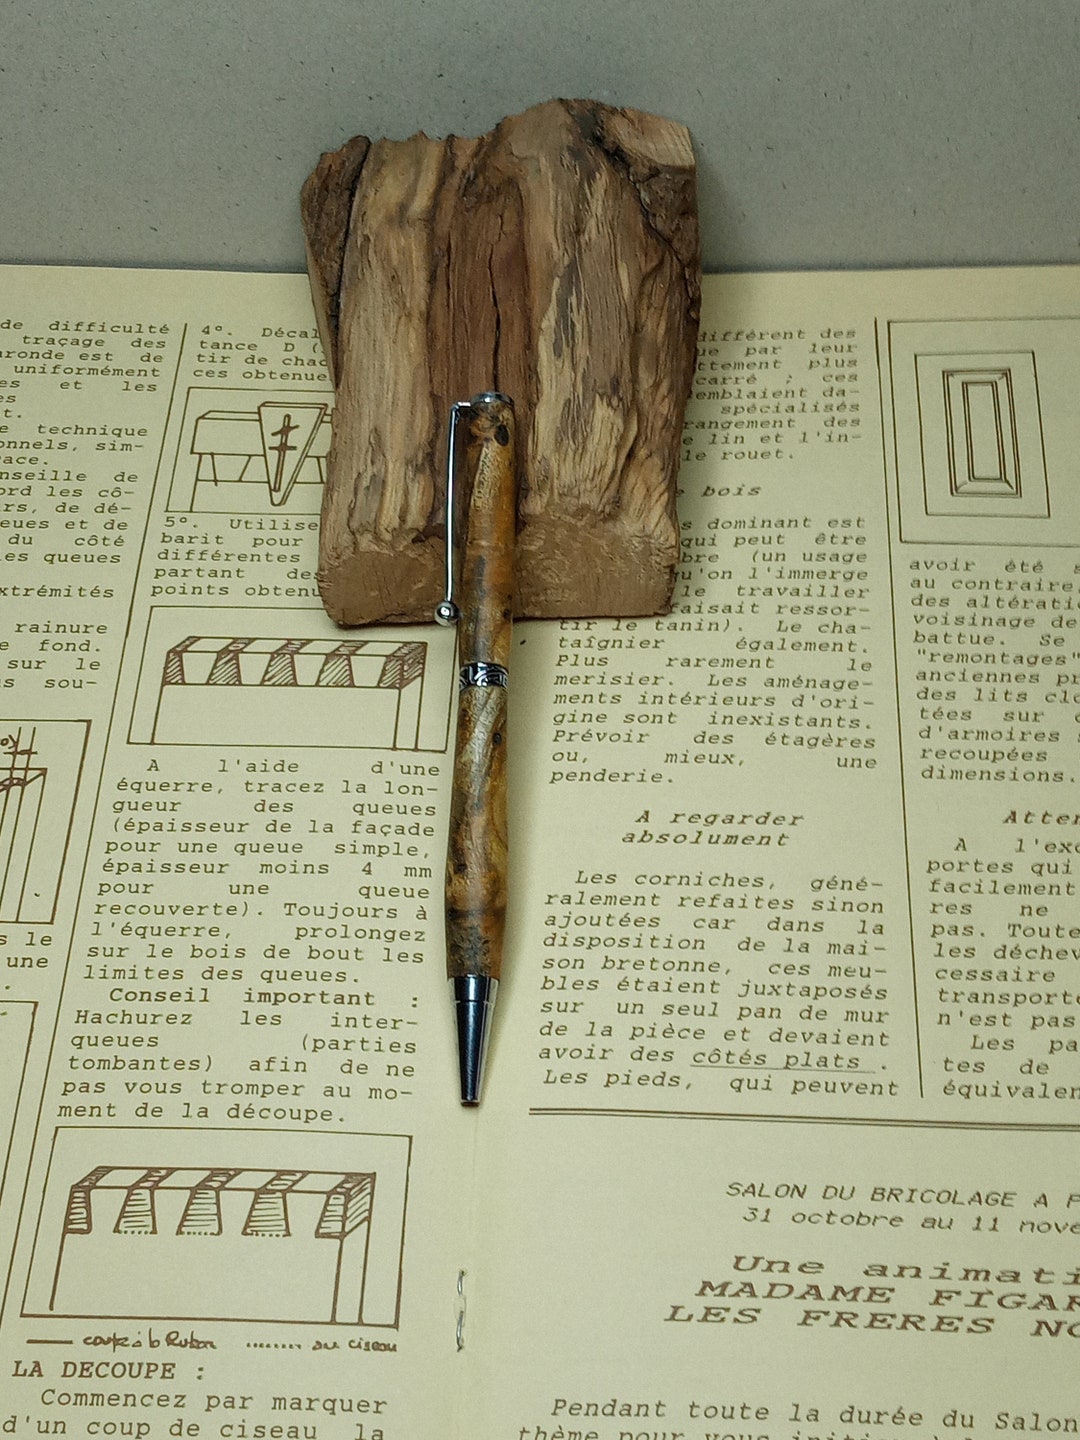 de difficulté
traçage des
aronde est de
uniformément
es et les
es
t.
e technique
onnels, sim-
ace.
nseille de
ord les cô-
rs, de dé-
eues et de
du côté
es queues
xtrémités
rainure
e fond.
sur le
us sou-
s le
une
4°. Décal
tance D (
tir de chac
ces obtenue
5°. Utilise
barit pour
différentes
partant des
points obtenu
A l'aide d'une
équerre, tracez la lon-
gueur des queues
(épaisseur de la façade
pour une queue simple,
épaisseur moins 4 mm
pour une queue
recouverte). Toujours à
l'équerre, prolongez
sur le bois de bout les
limites des queues.
Conseil important :
Hachurez les inter-
queues (parties
tombantes) afin de ne
pas vous tromper au mo-
ment de la découpe.
au ciseau
LA DECOUPE :
Commencez par marquer
d'un coup de ciseau la
différent des
ue par leur
ttement plus
carré ; ces
emblaient da-
spécialisés
rangement des
e lin et l'in-
le rouet.
e bois
s dominant est
qui peut être
bre (un usage
qu'on l'immerge
le travailler
faisait ressor-
tir le tanin). Le cha-
taîgnier également.
Plus rarement le
merisier. Les aménage-
ments intérieurs d'ori-
gine sont inexistants.
Prévoir des étagères
ou, mieux, une
penderie.
A regarder
absolument
Les corniches, géné-
ralement refaites sinon
ajoutées car dans la
disposition de la mai-
son bretonne, ces meu-
bles étaient juxtaposés
sur un seul pan de mur
de la pièce et devaient
avoir des côtés plats .
Les pieds, qui peuvent
avoir été s
au contraire,
des altérati
voisinage de
battue. Se
"remontages"
anciennes p
des lits clo
tées sur
d'armoires s
recoupées
dimensions.
Atten
A l'exc
portes qui
facilement
res ne
pas. Toute
les déchev
cessaire
transporte
n'est pas
Les pa
tes de
équivalen
SALON DU BRICOLAGE A F
31 octobre au 11 nove
Une animati
MADAME FIGAR
LES FRERES NO
Pendant toute la durée du Salon
thème pour vous